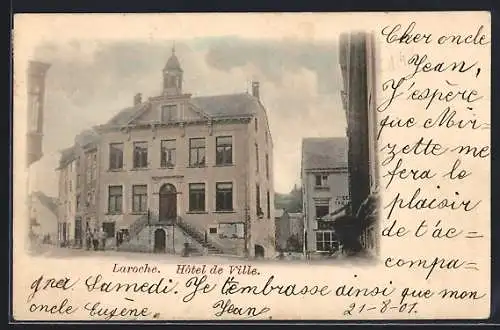 Cher oncle
Jean,
J'espère
que Mir-
zette me
fera le
plaisir
de t'ac-
compa-
Laroche. Hôtel de Ville.
gner Samedi. Je t'embrasse ainsi que mon
oncle Eugène. Jean 21-8-01.